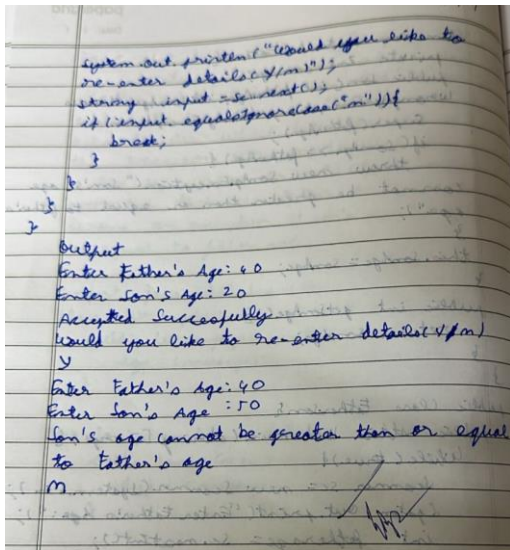 system.out.println("Would you like to
re-enter details(Y/n)");
string input = sc.next();
if (input.equalsIgnoreCase("n")){
break;
}
}
}
}
Output
Enter Father's Age: 40
Enter Son's Age: 20
Accepted Successfully
Would you like to re-enter details(Y/n)
Y
Enter Father's Age: 40
Enter Son's Age : 50
Son's age cannot be greater than or equal
to Father's age
n